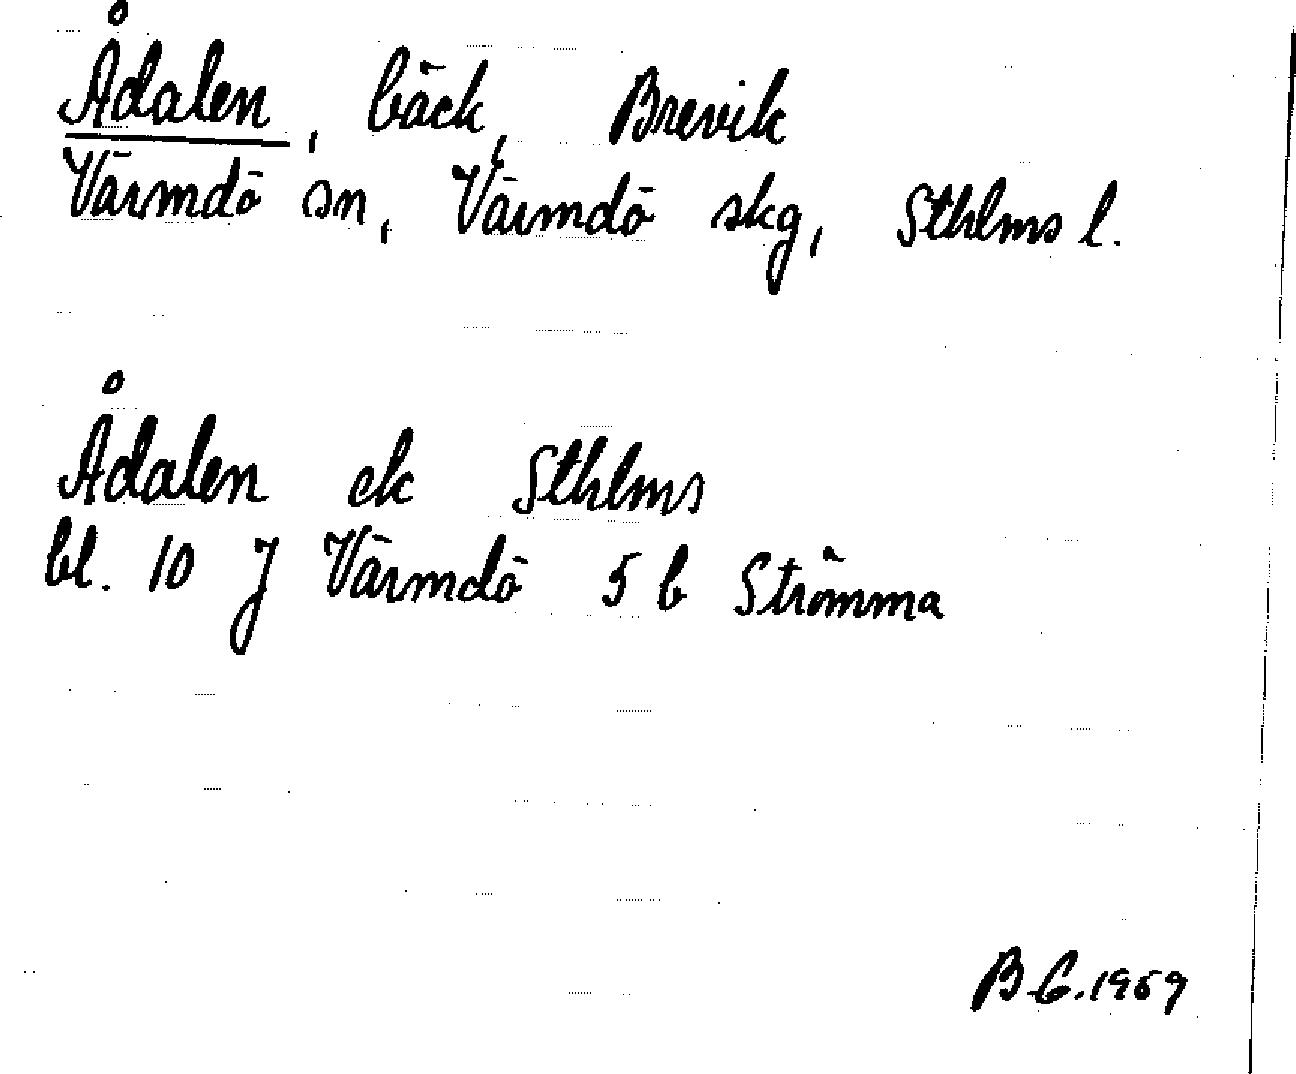 Ådalen, bäck, Brevik
Värmdö sn, Värmdö skg, Sthlms l.
Ådalen ek Sthlms
bl. 10 J Värmdö 5 b Strömma
B.G. 1959